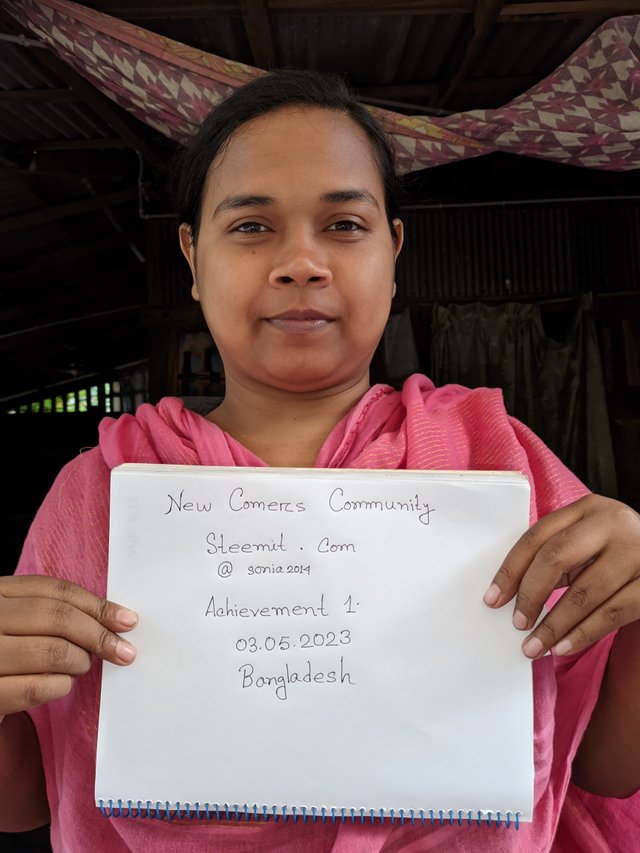 New Comers Community
Steemit . com
@ sonia2014
Achievement 1.
03.05.2023
Bangladesh